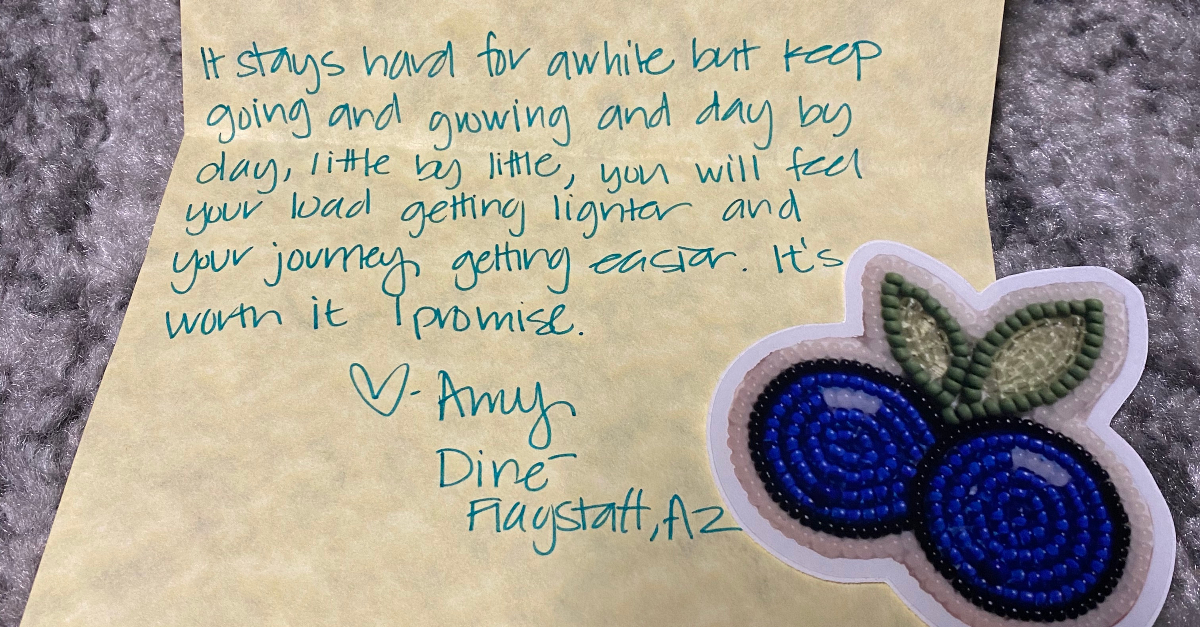 It stays hard for awhile but keep
going and growing and day by
day, little by little, you will feel
your load getting lighter and
your journey getting easier. It's
worth it I promise.
♡- Amy
Diné
Flagstaff, AZ